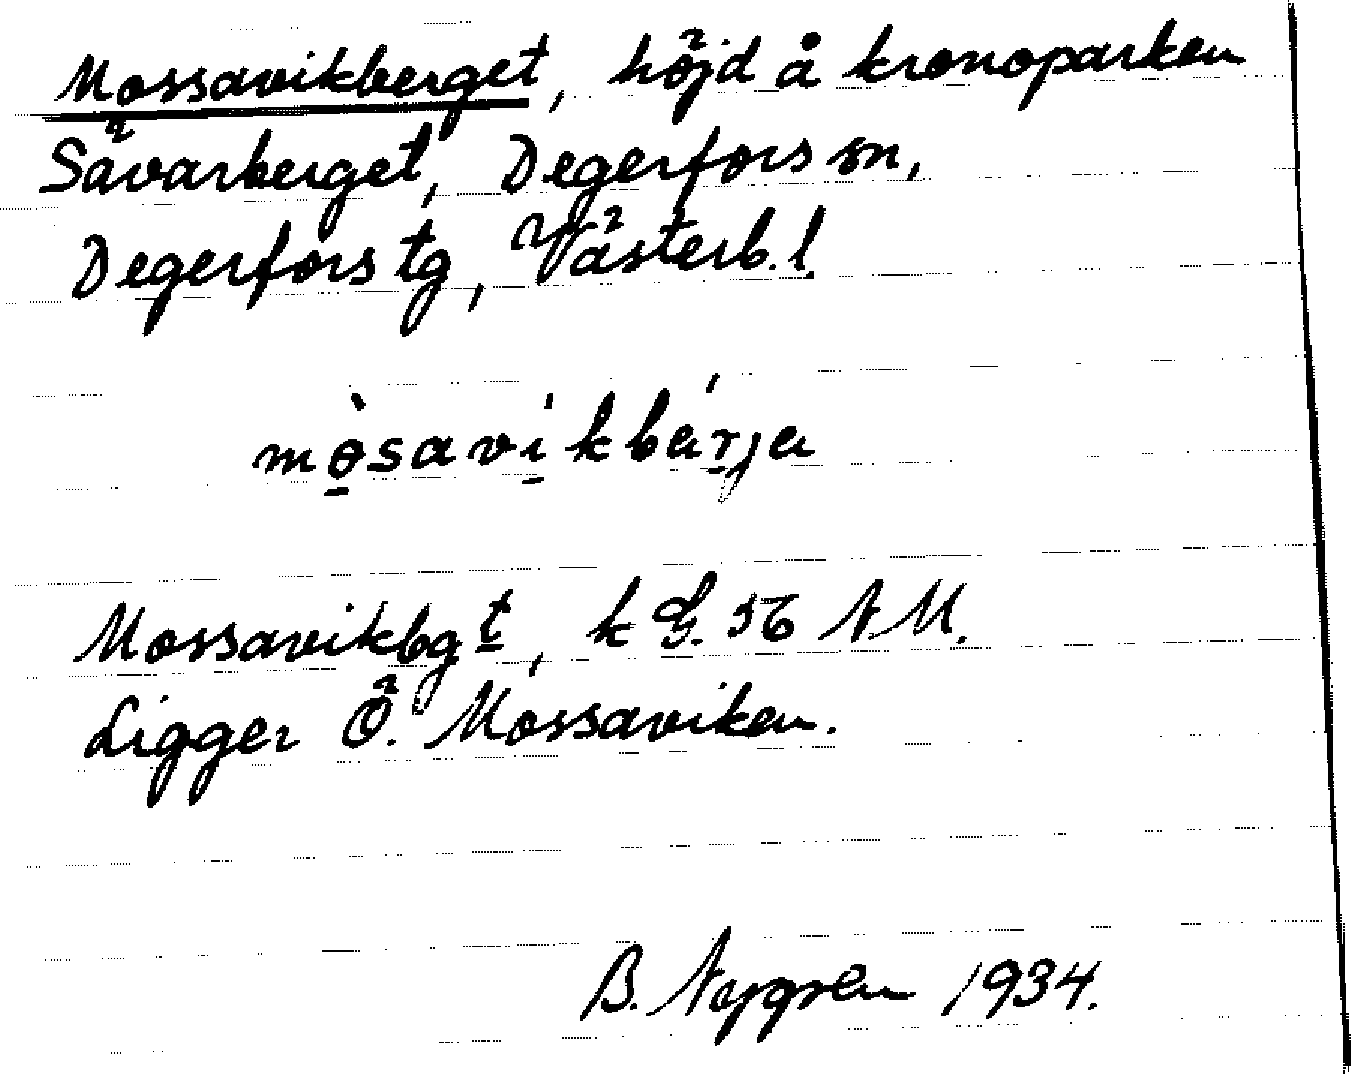 Mossavikberget, höjd å kronoparken
Sävarberget, Degerfors sn,
Degerfors tg, Västerb. l.
mòsavíkbárja
Mossavikbgt, k G. 56 N M.
Ligger Ö. Mossaviken.
B. Nygren 1934.